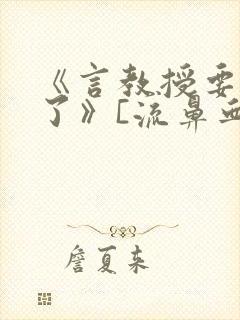 《言教授要
了》[流鼻血
詹夏来